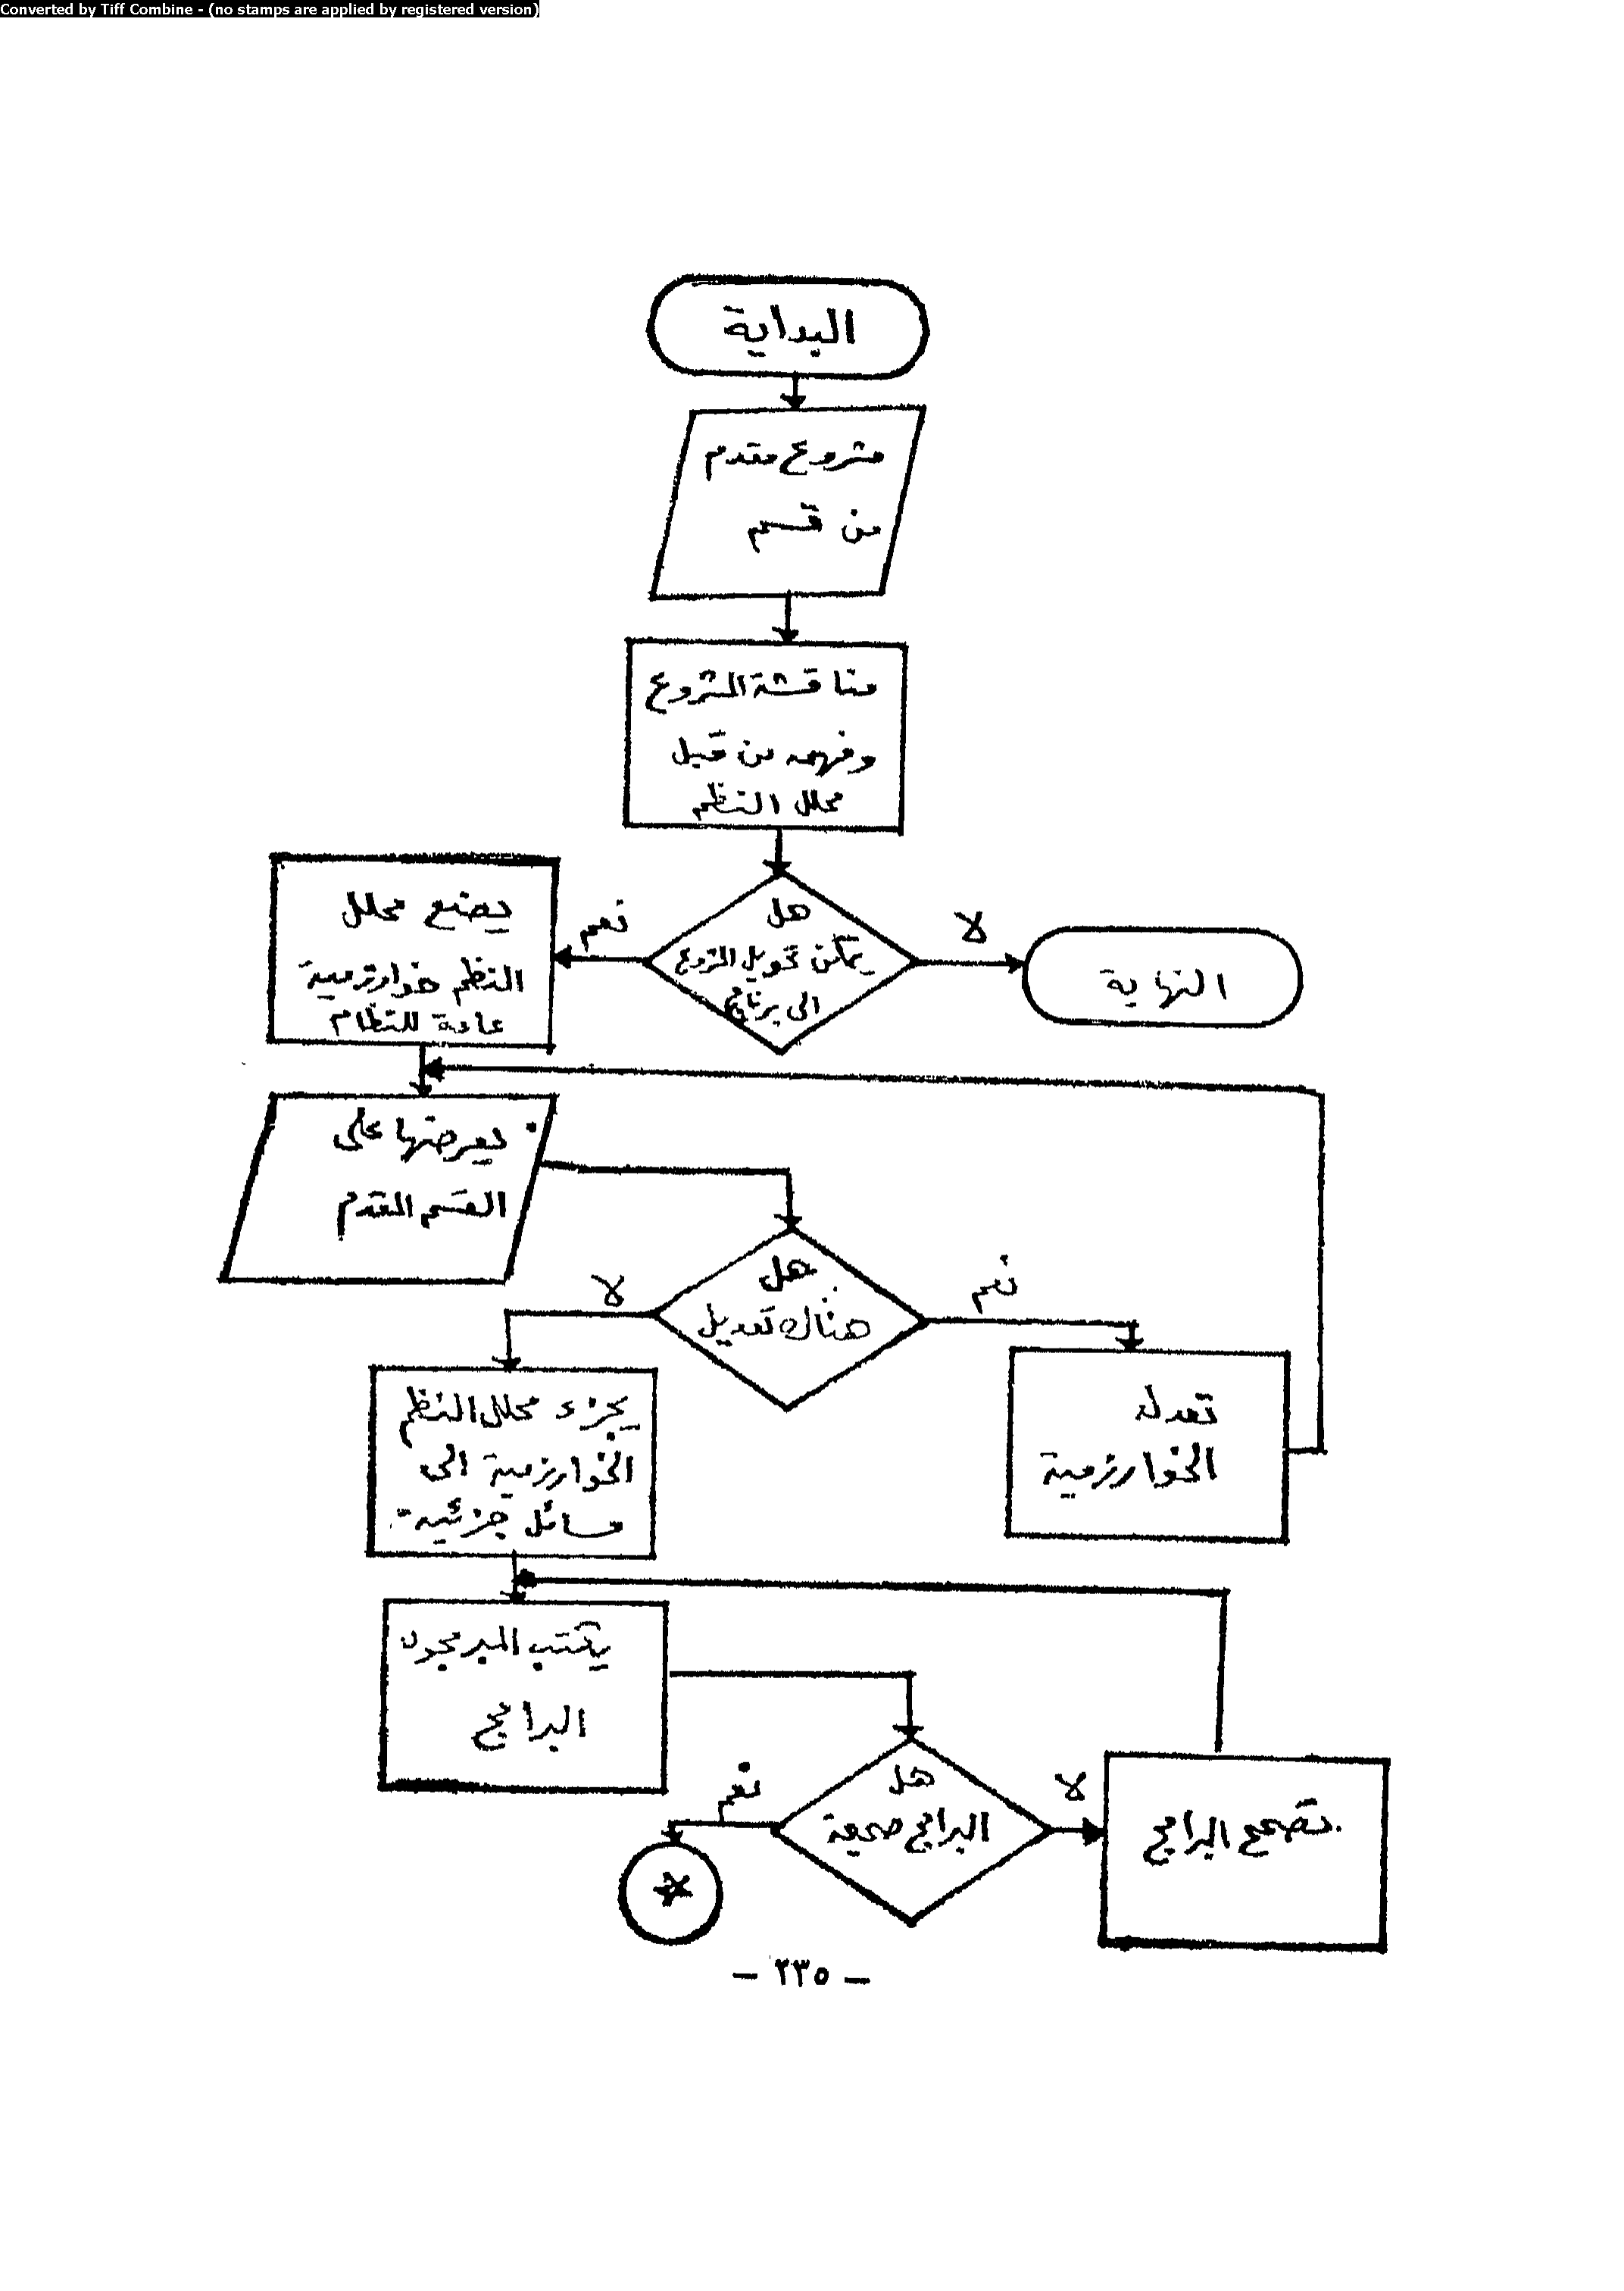 Converted by Tiff Combine - (no stamps are applied by registered version)
البداية
مشروع مقدم
من قسم
مناقشة المشروع
وفهمه من قبل
محلل النظم
هل
يمكن تحويل المشروع
الى برنامج
لا
النهاية
نعم
يضع محلل
النظم خوارزمية
عامة للنظام
يعرضها على
القسم المقدم
هل
هناك تعديل
نعم
تعدل
الخوارزمية
لا
يجزء محلل النظم
الخوارزمية الى
مسائل جزئية
يكتب المبرمجون
البرامج
هل
البرامج صحيحة
لا
تصحح البرامج
نعم
*
- ٢٣٥ -